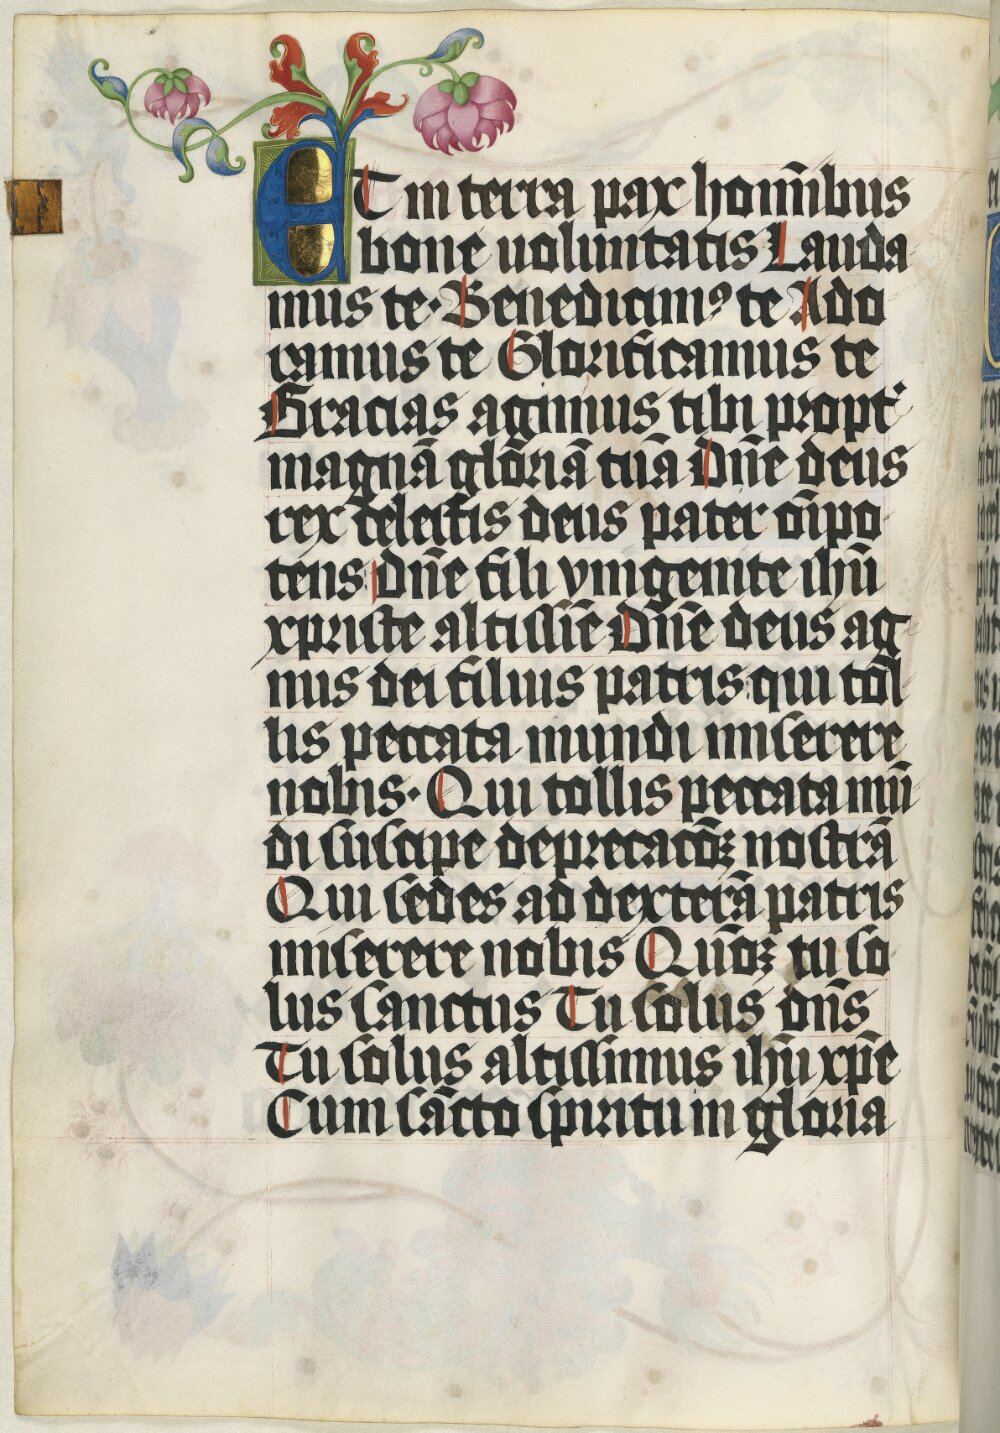 ET in terra pax hom̄ibus
bone uoluntatis Lauda
mus te · Benedicimꝰ te Ado
ramus te Glorificamus te
Gracias agimus tibi propt͛
magnā glōriā tuā Dn̄e deus
rex celestis deus pater om̄ipo
tens Dn̄e fili vnigenite ihū
xpriste altissīe Dn̄e deus ag
nus dei filius patris qui tōl
lis peccata mundi miserere
nobis · Qui tollis peccata mū
di suscipe deprecacōꝫ nostrā
Qui sedes ad dexterā patris
miserere nobis Qūoꝫ tu so
lus sanctus Tu solus dn̄s
Tu solus altissimus ihū xp̄e
Cum sācto spiritu in gloria